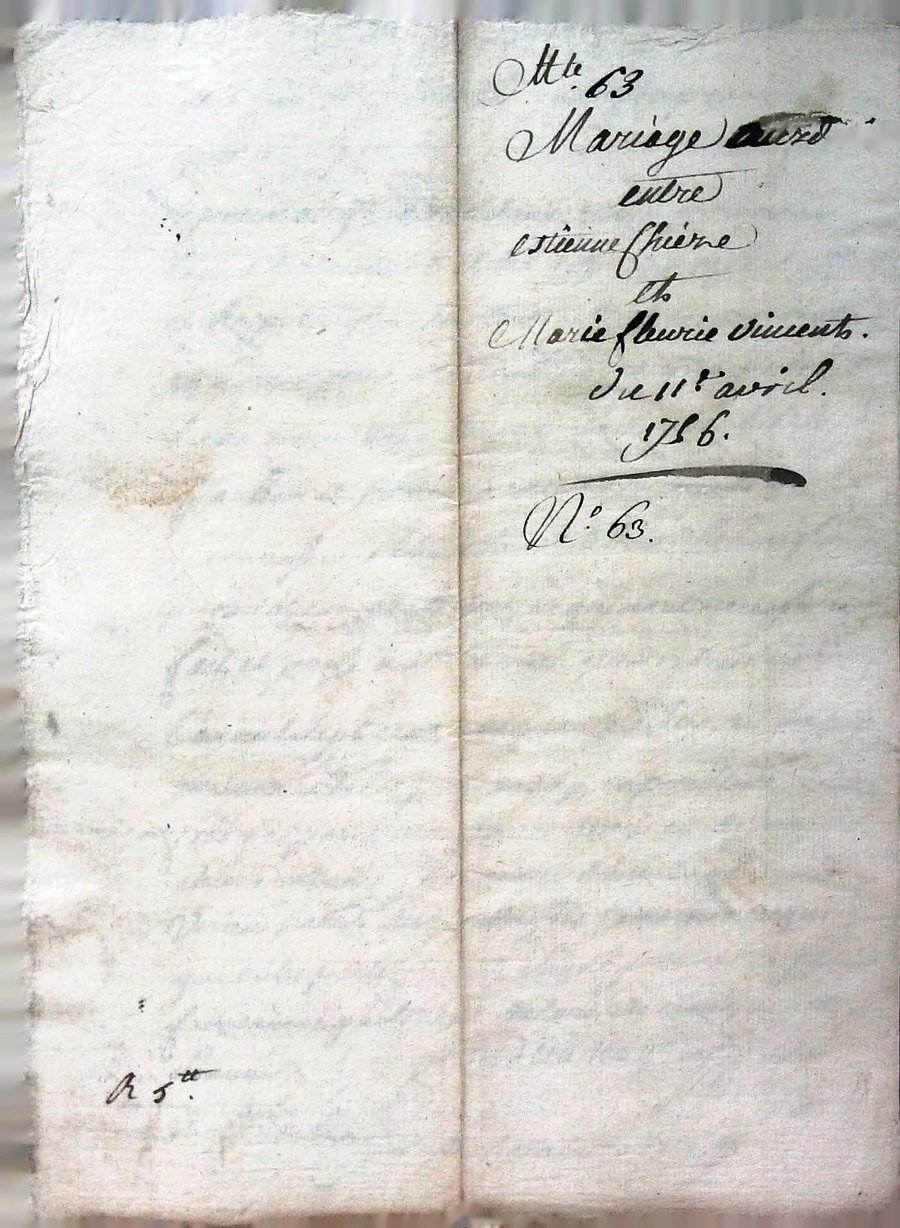 Mte. 63
Mariage
entre
estienne Chièze
et
Marie fleurie Vincent.
du 11e avril.
1756.
N.o 63.
R 5tt.